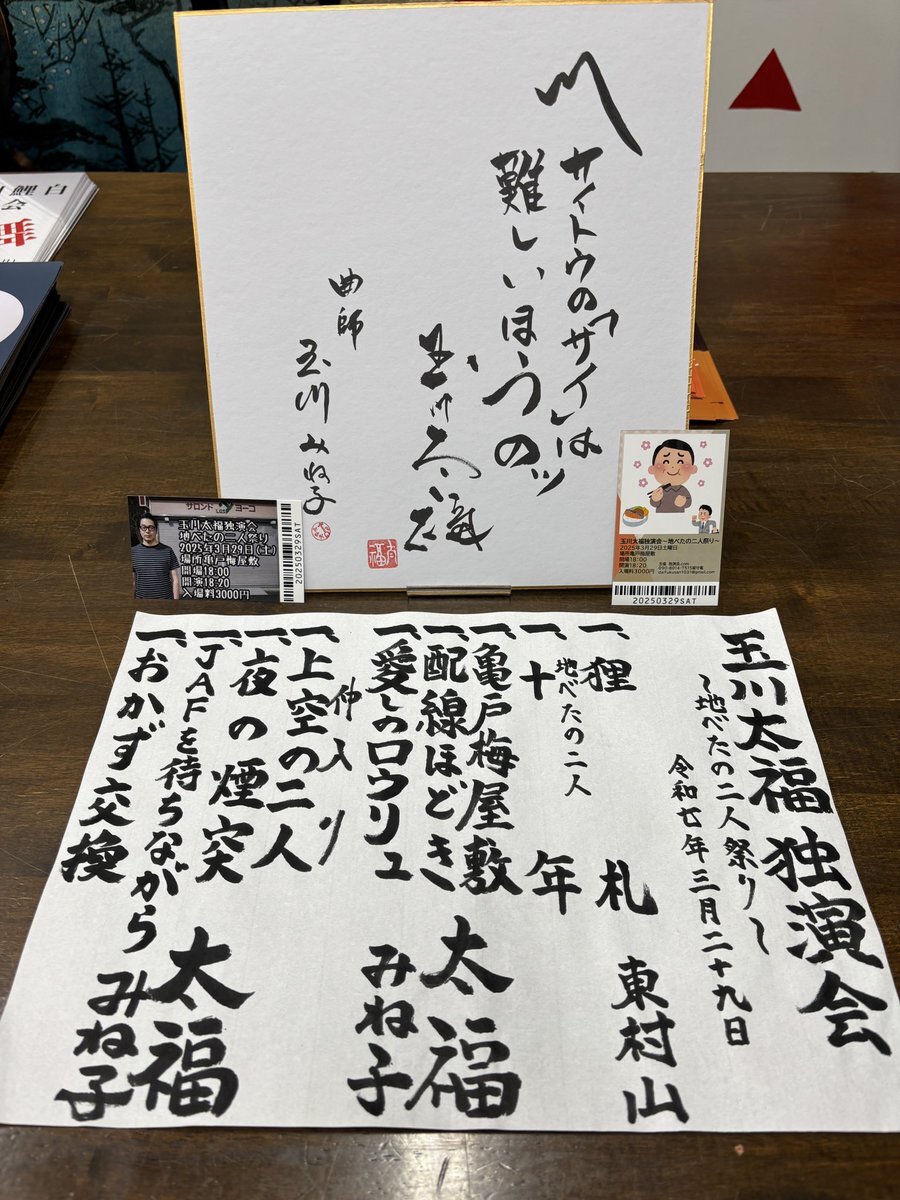 サイトウの「サイ」は
難しいほうのッ
玉川太福
曲師
玉川みね子
サロンド ヨーコ
玉川太福独演会
地べたの二人祭り
2025年3月29日(土)
場所亀戸梅屋敷
開場18:00
開演18:20
入場料3000円
20250329SAT
玉川太福独演会~地べたの二人祭り~
2025年3月29日土曜日
場所亀戸梅屋敷
開場18:00
開演18:20
入場料3000円
20250329SAT
玉川太福独演会
~地べたの二人祭り~
令和七年三月二十九日
一、狸札 東村山
地べたの二人
一、十年
一、亀戸梅屋敷
一、配線ほどき 太福
一、愛しのロウリュ みね子
仲入り
一、上空の二人
一、夜の煙突
一、JAFを待ちながら 太福
一、おかず交換 みね子
鯉白
会